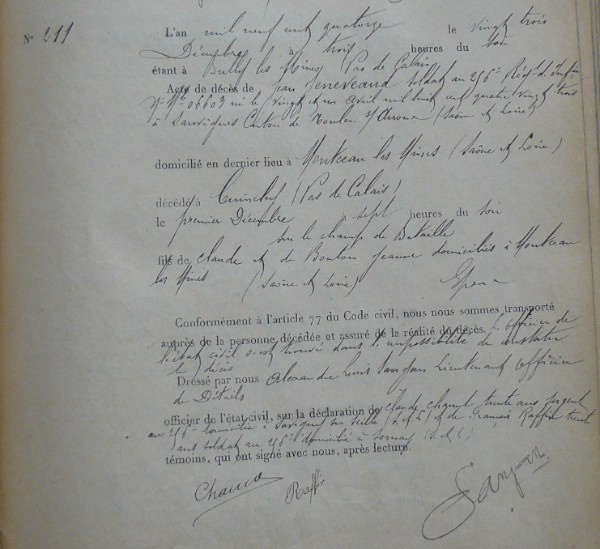 N° 211
L'an mil neuf cent quatorze le vingt trois
Décembre à trois heures du soir
étant à Bully les Mines Pas de Calais
Acte de décès de Jean Seneveaud soldat au 256e Régt d. Inf
N° Mle 06603 né le vingt et un avril mil huit cent quatre vingt trois
à Sanvignes Canton de Toulon s/ Arroux (Saône et Loire)
domicilié en dernier lieu à Montceau les Mines (Saône et Loire)
décédé à Cuinchy (Pas de Calais)
le premier Décembre à sept heures du soir
sur le champ de Bataille
fils de Claude et de Bouton Jeanne domiciliés à Montceau
les Mines (Saône et Loire)
Conformément à l'article 77 du Code civil, nous nous sommes transporté
auprès de la personne décédée et assuré de la réalité du décès. l'officier de
l'état civil s'est trouvé dans l'impossibilité de constater
le décès
Dressé par nous Alexandre Louis Lieutenant officier
de Détails
officier de l'état civil, sur la déclaration de Claude trente ans sergent
au 256e domicilié à Savigny sur Seille (S et L) et de François Raffin trente
ans soldat au 256e domicilié à Sornay (S et L)
témoins, qui ont signé avec nous, après lecture.
Raffin